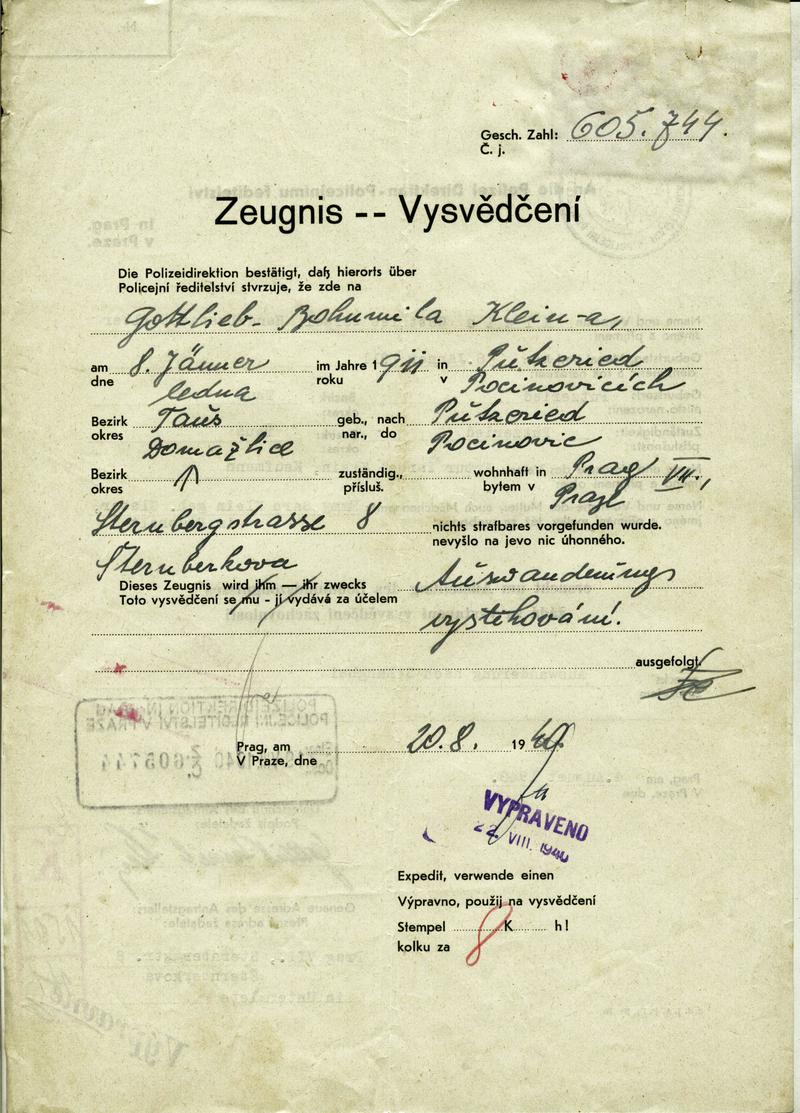 Gesch. Zahl: 605.744.
Č. j.
Zeugnis -- Vysvědčení
Die Polizeidirektion bestätigt, daß hierorts über
Policejní ředitelství stvrzuje, že zde na
Gottlieb- Bohumila Klein-a,
am 8. Jänner im Jahre 1911 in Pützeried
dne ledna roku v Pocinovicích
Bezirk Taus geb., nach Pützeried
okres Domažlice nar., do Pocinovic
Bezirk zuständig., wohnhaft in Prag VII.,
okres přísluš. bytem v Praze
Sternbergstrasse 8 nichts strafbares vorgefunden wurde.
nevyšlo na jevo nic úhonného.
Šternberkova
Dieses Zeugnis wird ihm — ihr zwecks Auswanderungs
Toto vysvědčení se mu - jí vydává za účelem
vystěhování.
ausgefolgt.
POLIZEIDIREKTION IN PRAG
POLICEJNÍ ŘEDITELSTVÍ V PRAZE
605744
Prag, am 20.8. 1940
V Praze, dne
VYPRAVENO
22. VIII. 1940
Expedit, verwende einen
Výpravno, použij na vysvědčení
Stempel 8 K h!
kolku za